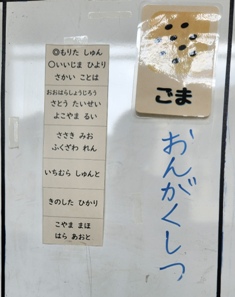 ◎もりた しゅん
○いいじま ひより
さかい ことは
おおはらしょうじろう
さとう たいせい
よこやま るい
ささき みお
ふくざわ れん
いちむら しゅんと
きのした ひかり
こやま まほ
はら あおと
ごま
おんがくしつ